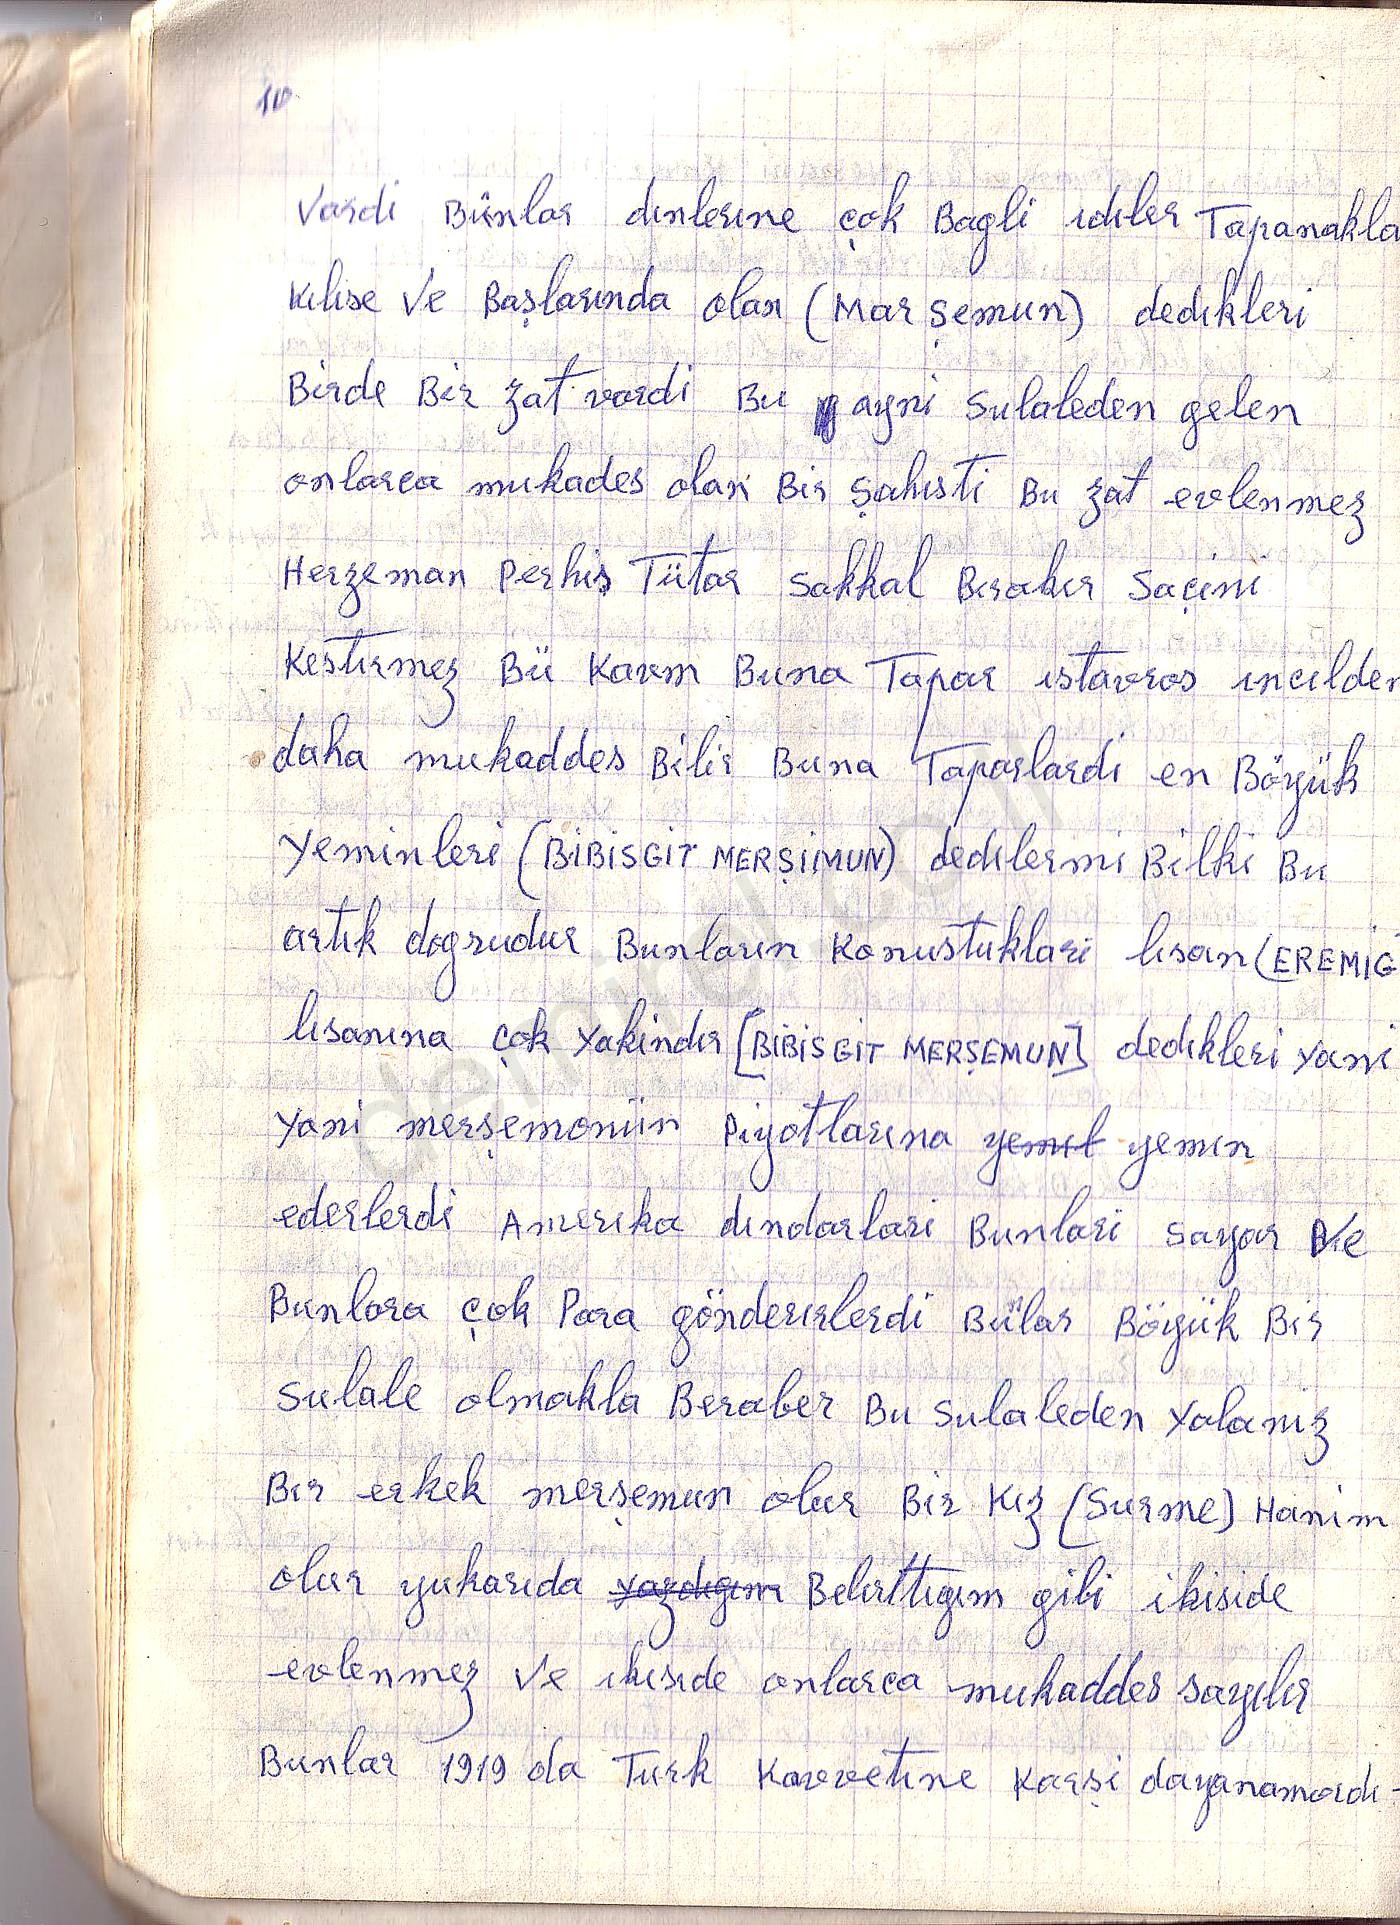 10
Vardi Bünlar dınlerıne çok Bagli ıdıler Tapanakla
Kılıse Ve Başlarında olan (Mar şemun) dedıkleri
Birde Bir zat vardi Bu ayni Sulaleden gelen
onlarca mukades olan Bir şahısti Bu zat evlenmez
Herzeman Perhis Tütar Sakkal Bırakır Saçini
Kestırmez Bü Kavım Buna Tapar ıstavros ıncılden
daha mukaddes Bilir Buna Taparlardi en Böyük
Yeminleri (BİBİSGİT MERŞİMUN) dedılermi Bilki Bu
artık dogrudur Bunların Konustukları lısan (EREMİG
lısanına çok Yakindır [BİBİSGİT MERŞEMUN] dedıkleri Yani
Yani merşemonün Piyotlarına yemıl yemın
ederlerdi Amerıka dındarlari Bunlari Sayar Ve
Bunlara çok Para gönderırlerdi Bülar Böyük Bir
Sulale olmakla Beraber Bu Sulaleden Yalaniz
Bır erkek merşemun olur Bir Kız (Surme) Hanim
olur yukarıda yazdıgım Belırttıgım gibi ikiside
evlenmez Ve ıkısıde onlarca mukaddes sayılır
Bunlar 1919 da Turk Kavvetıne Karşi dayanamardı-